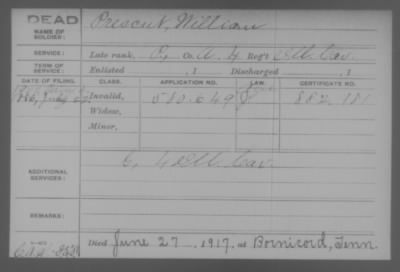 DEAD
NAME OF SOLDIER:
Prescut, William
SERVICE:
Late rank, Co. A, 4 Reg't Ill. Cav.
TERM OF SERVICE:
Enlisted , 1 Discharged , 1
DATE OF FILING. CLASS. APPLICATION NO. LAW. CERTIFICATE NO.
Invalid, 580.649 882.181
Widow,
Minor,
ADDITIONAL SERVICES:
Ill. Cav.
REMARKS:
Died June 27, 1917, at Bornicord, Tenn.